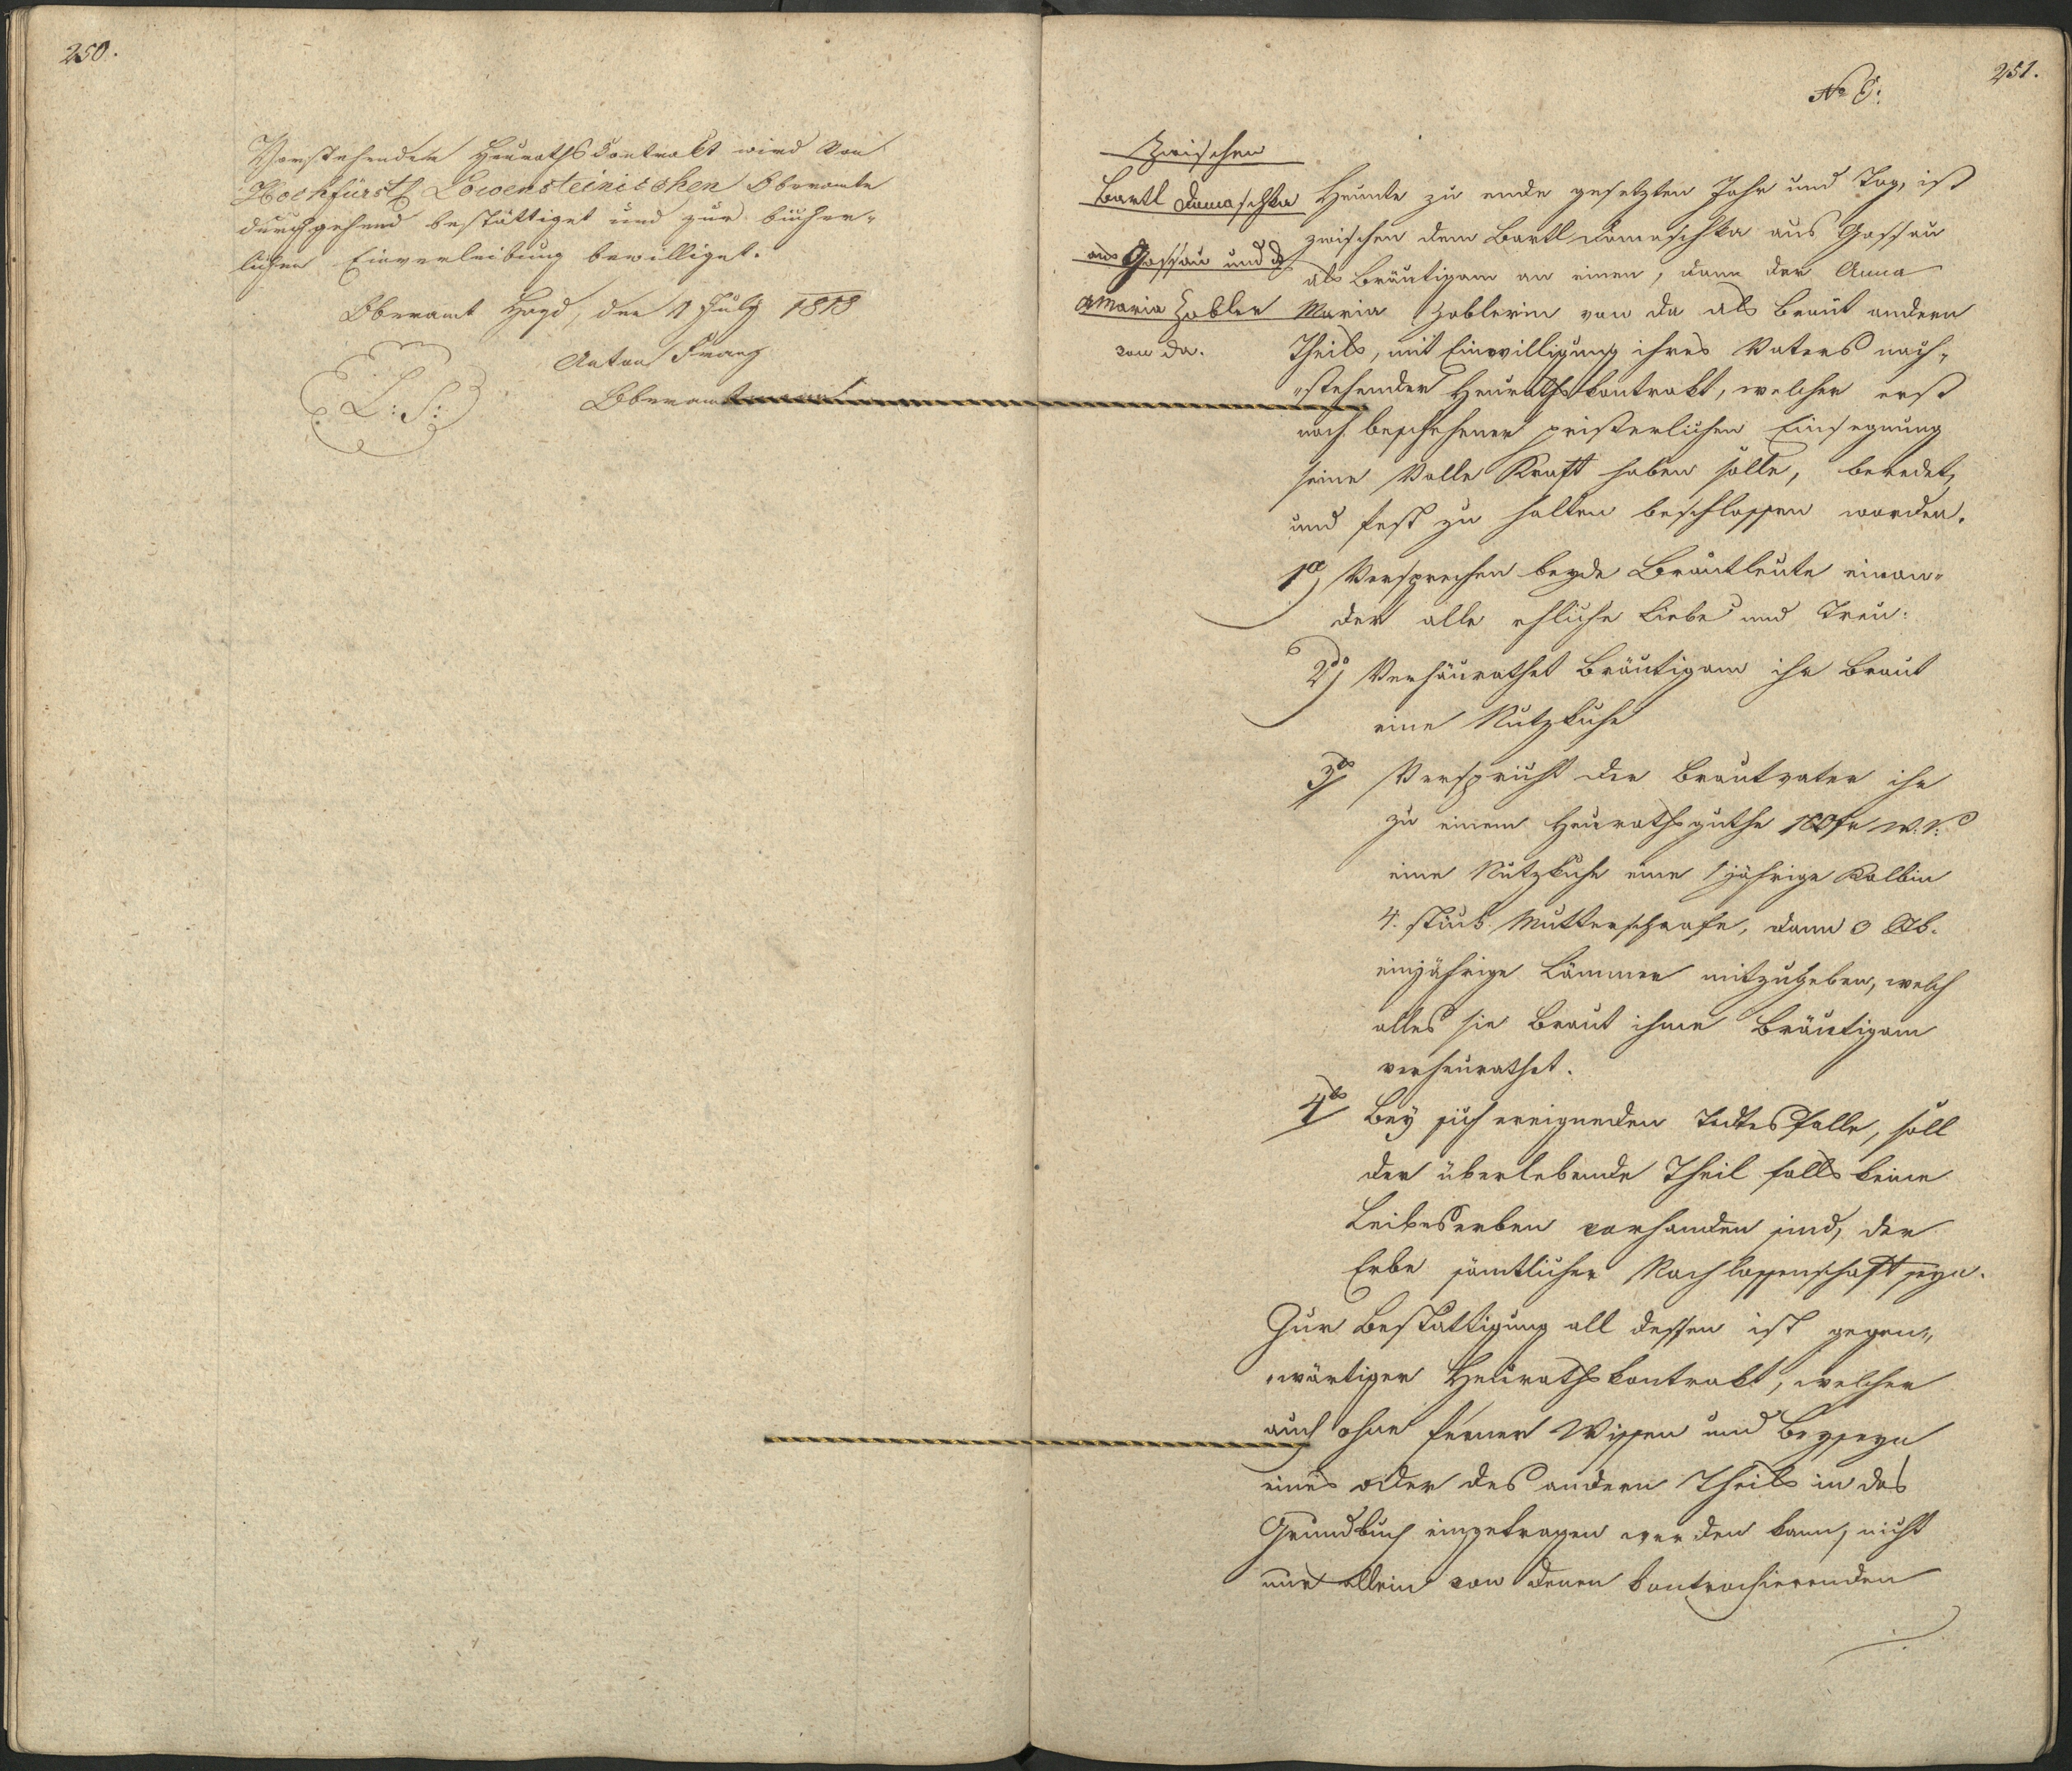 250.
Vorstehender Heurathskontrakt wird von
Hochfürstl. Löwensteinischen Oberamte
durchgehend bestättiget und zur bücher-
lichen Einverleibung bewilliget.
Oberamt Hayd, den 11 July 1818
Anton Franz
L: S:
Oberamtmann
251.
No 8:
Zwischen
Bartl Damaschka
aus Gossau und d
A Maria Zobler
von da.
Heunte zu ende gesetzten Jahr und Tag, ist
zwischen dem Bartl Damaschka aus Gossau
als Bräutigam an einen, dann der Anna
Maria Zoblerin von da als Braut andern
Theils, mit Einwilligung ihres Vaters nach-
"stehender Heurathskontrakt, welcher erst
nach beschehener pristerlichen Einsegnung
seine Volle Kraft haben solle, beredet,
und fest zu halten beschlossen worden.
1o Versprechen beyde Brautleute einan-
der alle ehliche Liebe und Treu:
2do Verheurathet Bräutigam ihr Braut
eine Nutzkuhe
3o Verspricht der Brautvater ihr
zu einem Heurathsguthe 100 fr W. W.
eine Nutzkuhe eine 1 jährige Kalbin
4. stück Mutterschaafe, dann
einjährige Lämmer mitzugeben, welch
alles sie Braut ihme Bräutigam
verheurathet.
4to Bey sich ereigneden Todtesfalle, soll
der überlebende Theil falls keine
Leibeserben vorhanden sind, der
Erbe sämtlicher Nachlassenschaft seyn.
Zur Bestättigung all dessen ist gegen-
"wärtiger Heurathskontrakt, welcher
auch ohne ferner Wissen und Beyseyn
eines oder des andern Theils in das
Grundbuch eingetragen werden kann, nicht
nur allein von denen kontrahierenden